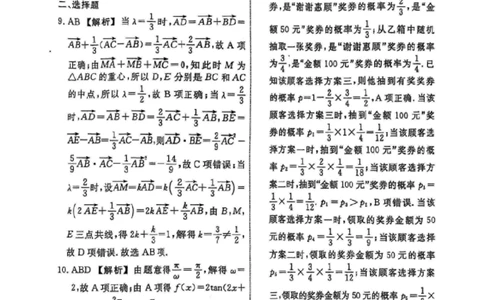 二、选择题
9.AB 【解析】当 λ=1/3 时,AD=AB+BD=
AB+1/3(AC-AB)=1/3AC+2/3AB,故 A 项
正确;由MA+MB+MC=0,知此时 M 为
△ABC 的重心,所以 D,E 分别是 BC 和 AC
的中点,所以 λ=1/2,故 B 项正确;当 λ=2/3
时,AD=AB+BD=2/3AC+1/3AB,BE=
AE-AB=1/3AC-AB,则AD·BE=2/9AC²-
5/9AB·AC-1/3AB²=-14/9,故 C 项错误;当
λ=2/3时,设AM=kAD=k(2/3AC+1/3AB)=
k(2AE+1/3AB)=2kAE+k/3AB,由 B,M,
E 三点共线,得 2k+k/3=1,解得 k=3/7≠1/2,
故 D 项错误.故选 AB 项.
10.ABD 【解析】由题意得π/ω=π/2,解得 ω=
2,故 A 项正确;由 A 项得 f(x)=2tan(2x+
券,是“谢谢惠顾”奖券的概率为2/3,是“金
额 50 元”奖券的概率为1/3;从乙箱中随机
抽取一张奖券,是“谢谢惠顾”奖券的概率
为3/4,是“金额 100 元”奖券的概率为1/4.已
知该顾客选择方案三,则他抽到有奖奖券
的概率 p=1-2/3×3/4=1/2,A 项正确.当该
顾客选择方案三时,抽到“金额 100 元”奖
券的概率 p₁=1/3×1×1/4=1/12;当该顾客选
择方案一时,抽到“金额 100 元”奖券的概
率 p₂=1/3×2/3×1/4=1/18;当该顾客选择方
案二时,抽到“金额 100 元”奖券的概率 p₃=
1/3×1/4=1/12.p₁=p₃>p₂,B 项错误.当该
顾客选择方案一时,领取的奖券金额为 50
元的概率 p₄=1/3×1/3=1/9;当该顾客选择
方案二时,领取的奖券金额为 50 元的概率
p₅=1/3×3/4×1/3=1/12;当该顾客选择方案
三,领取的奖券金额为 50 元的概率为 p₆=